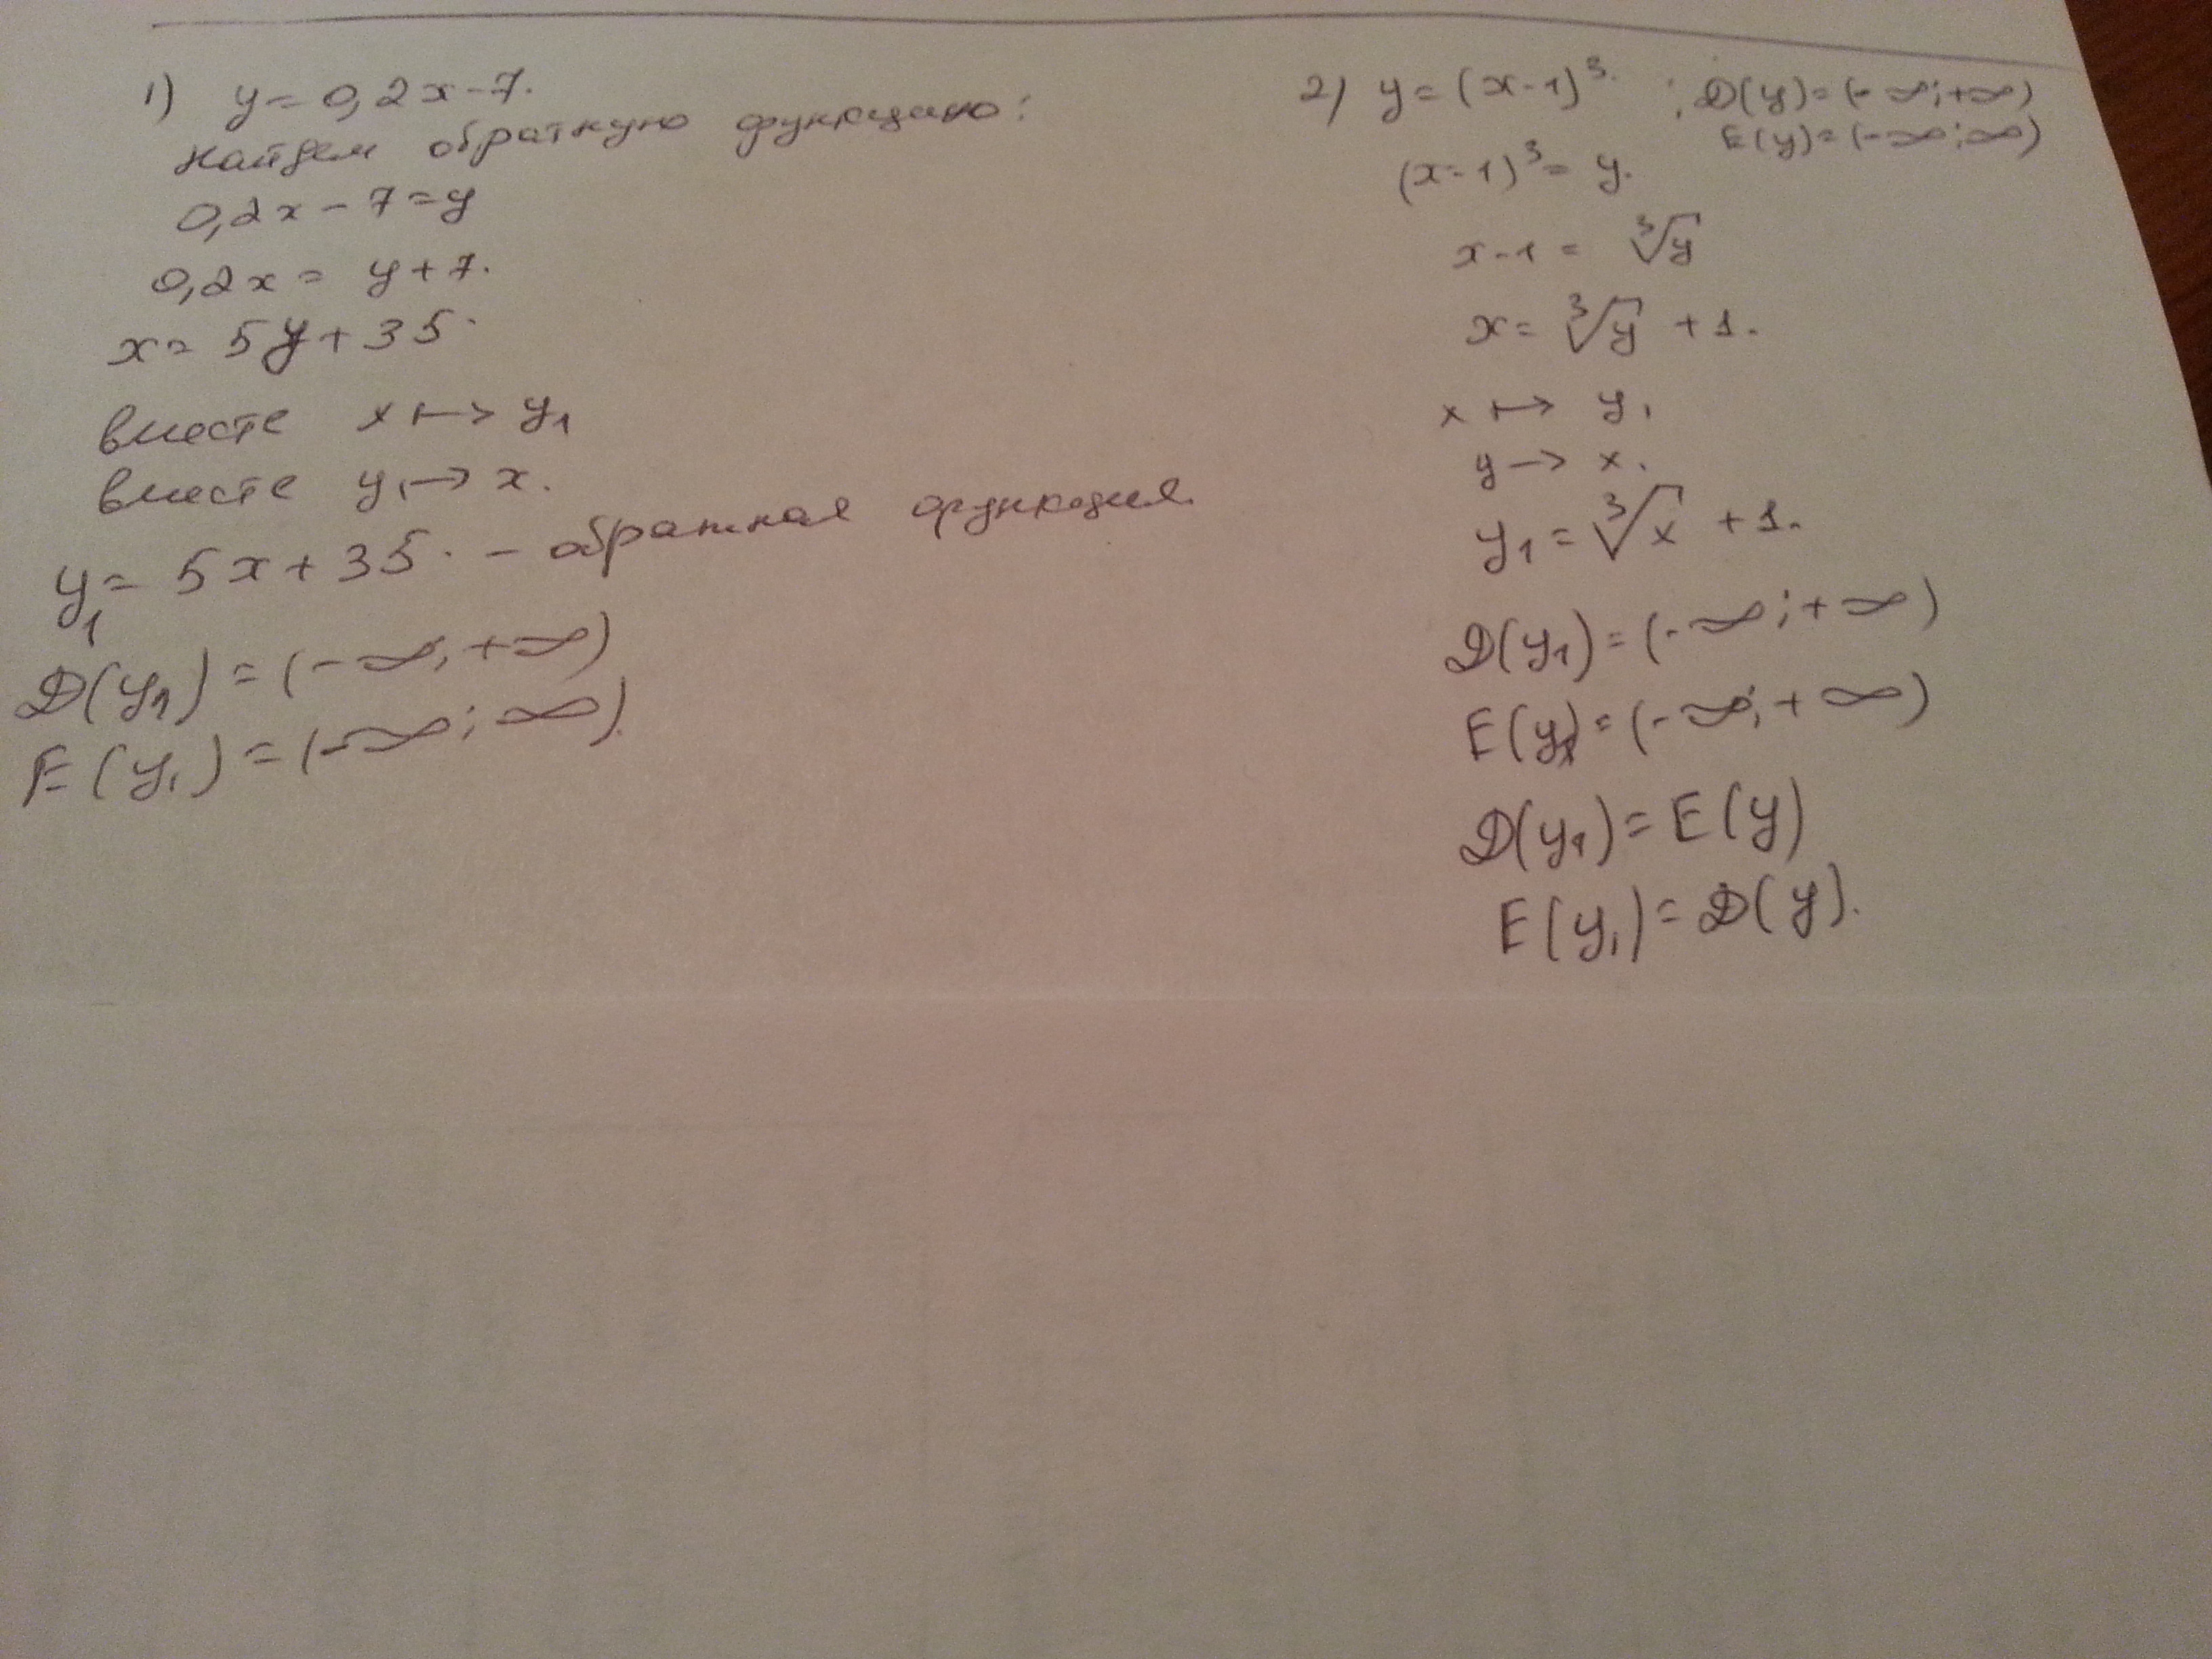 1) y = 0,2x - 7.
найдем обратную функцию:
0,2x - 7 = y
0,2x = y + 7.
x = 5y + 35.
вместе x ↦ y₁
вместе y ↦ x.
y₁ = 5x + 35. – обратная функция.
D(y₁) = (-∞; +∞)
E(y₁) = (-∞; ∞).
2) y = (x-1)³. ; D(y) = (-∞; +∞)
E(y) = (-∞; ∞)
(x-1)³ = y.
x - 1 = ∛y
x = ∛y + 1.
x ↦ y₁
y → x.
y₁ = ∛x + 1.
D(y₁) = (-∞; +∞)
E(y₁) = (-∞; +∞)
D(y₁) = E(y)
E(y₁) = D(y).